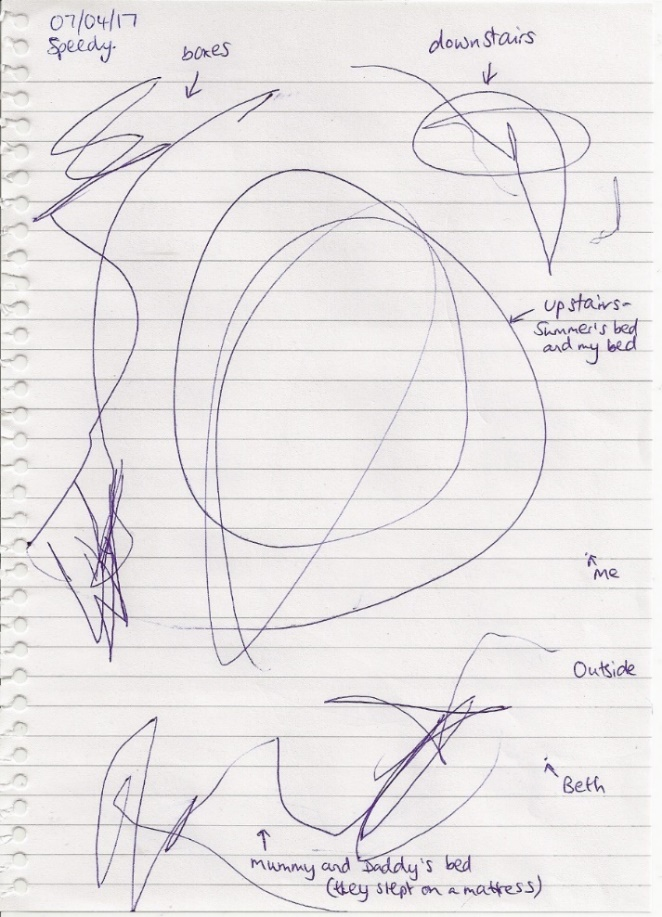 07/04/17
Speedy.
boxes
downstairs
upstairs-
Summer's bed
and my bed
Me
Outside
Beth
Mummy and Daddy's bed
(they slept on a mattress)